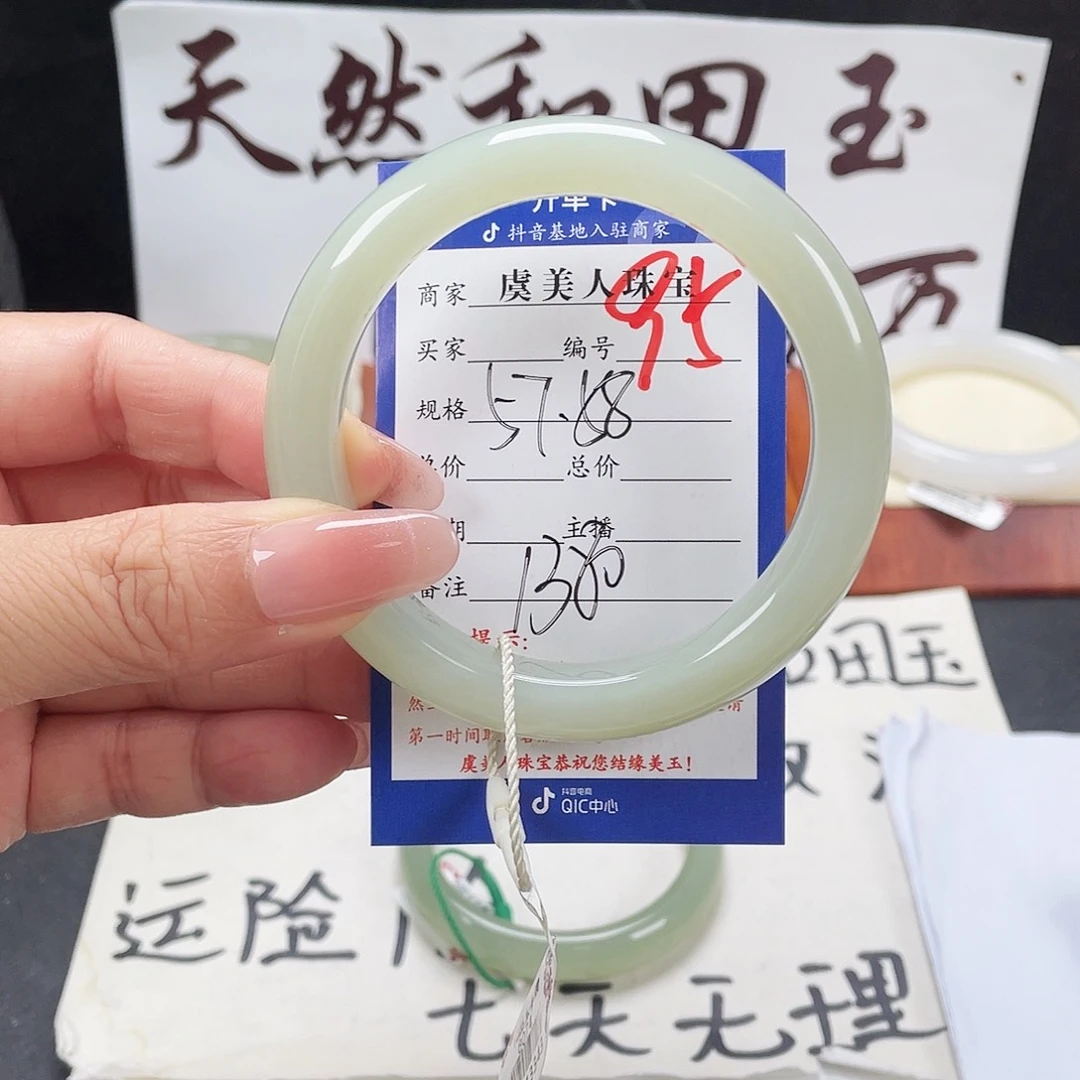 天然和田玉
万
开单卡
抖音基地入驻商家
商家 虞美人珠宝
95
买家 编号
规格 57.88
总价 总价
主播
备注
提示:
第一时间
虞美人珠宝恭祝您结缘美玉!
抖音电商
QIC中心
田玉
运险
七天无理